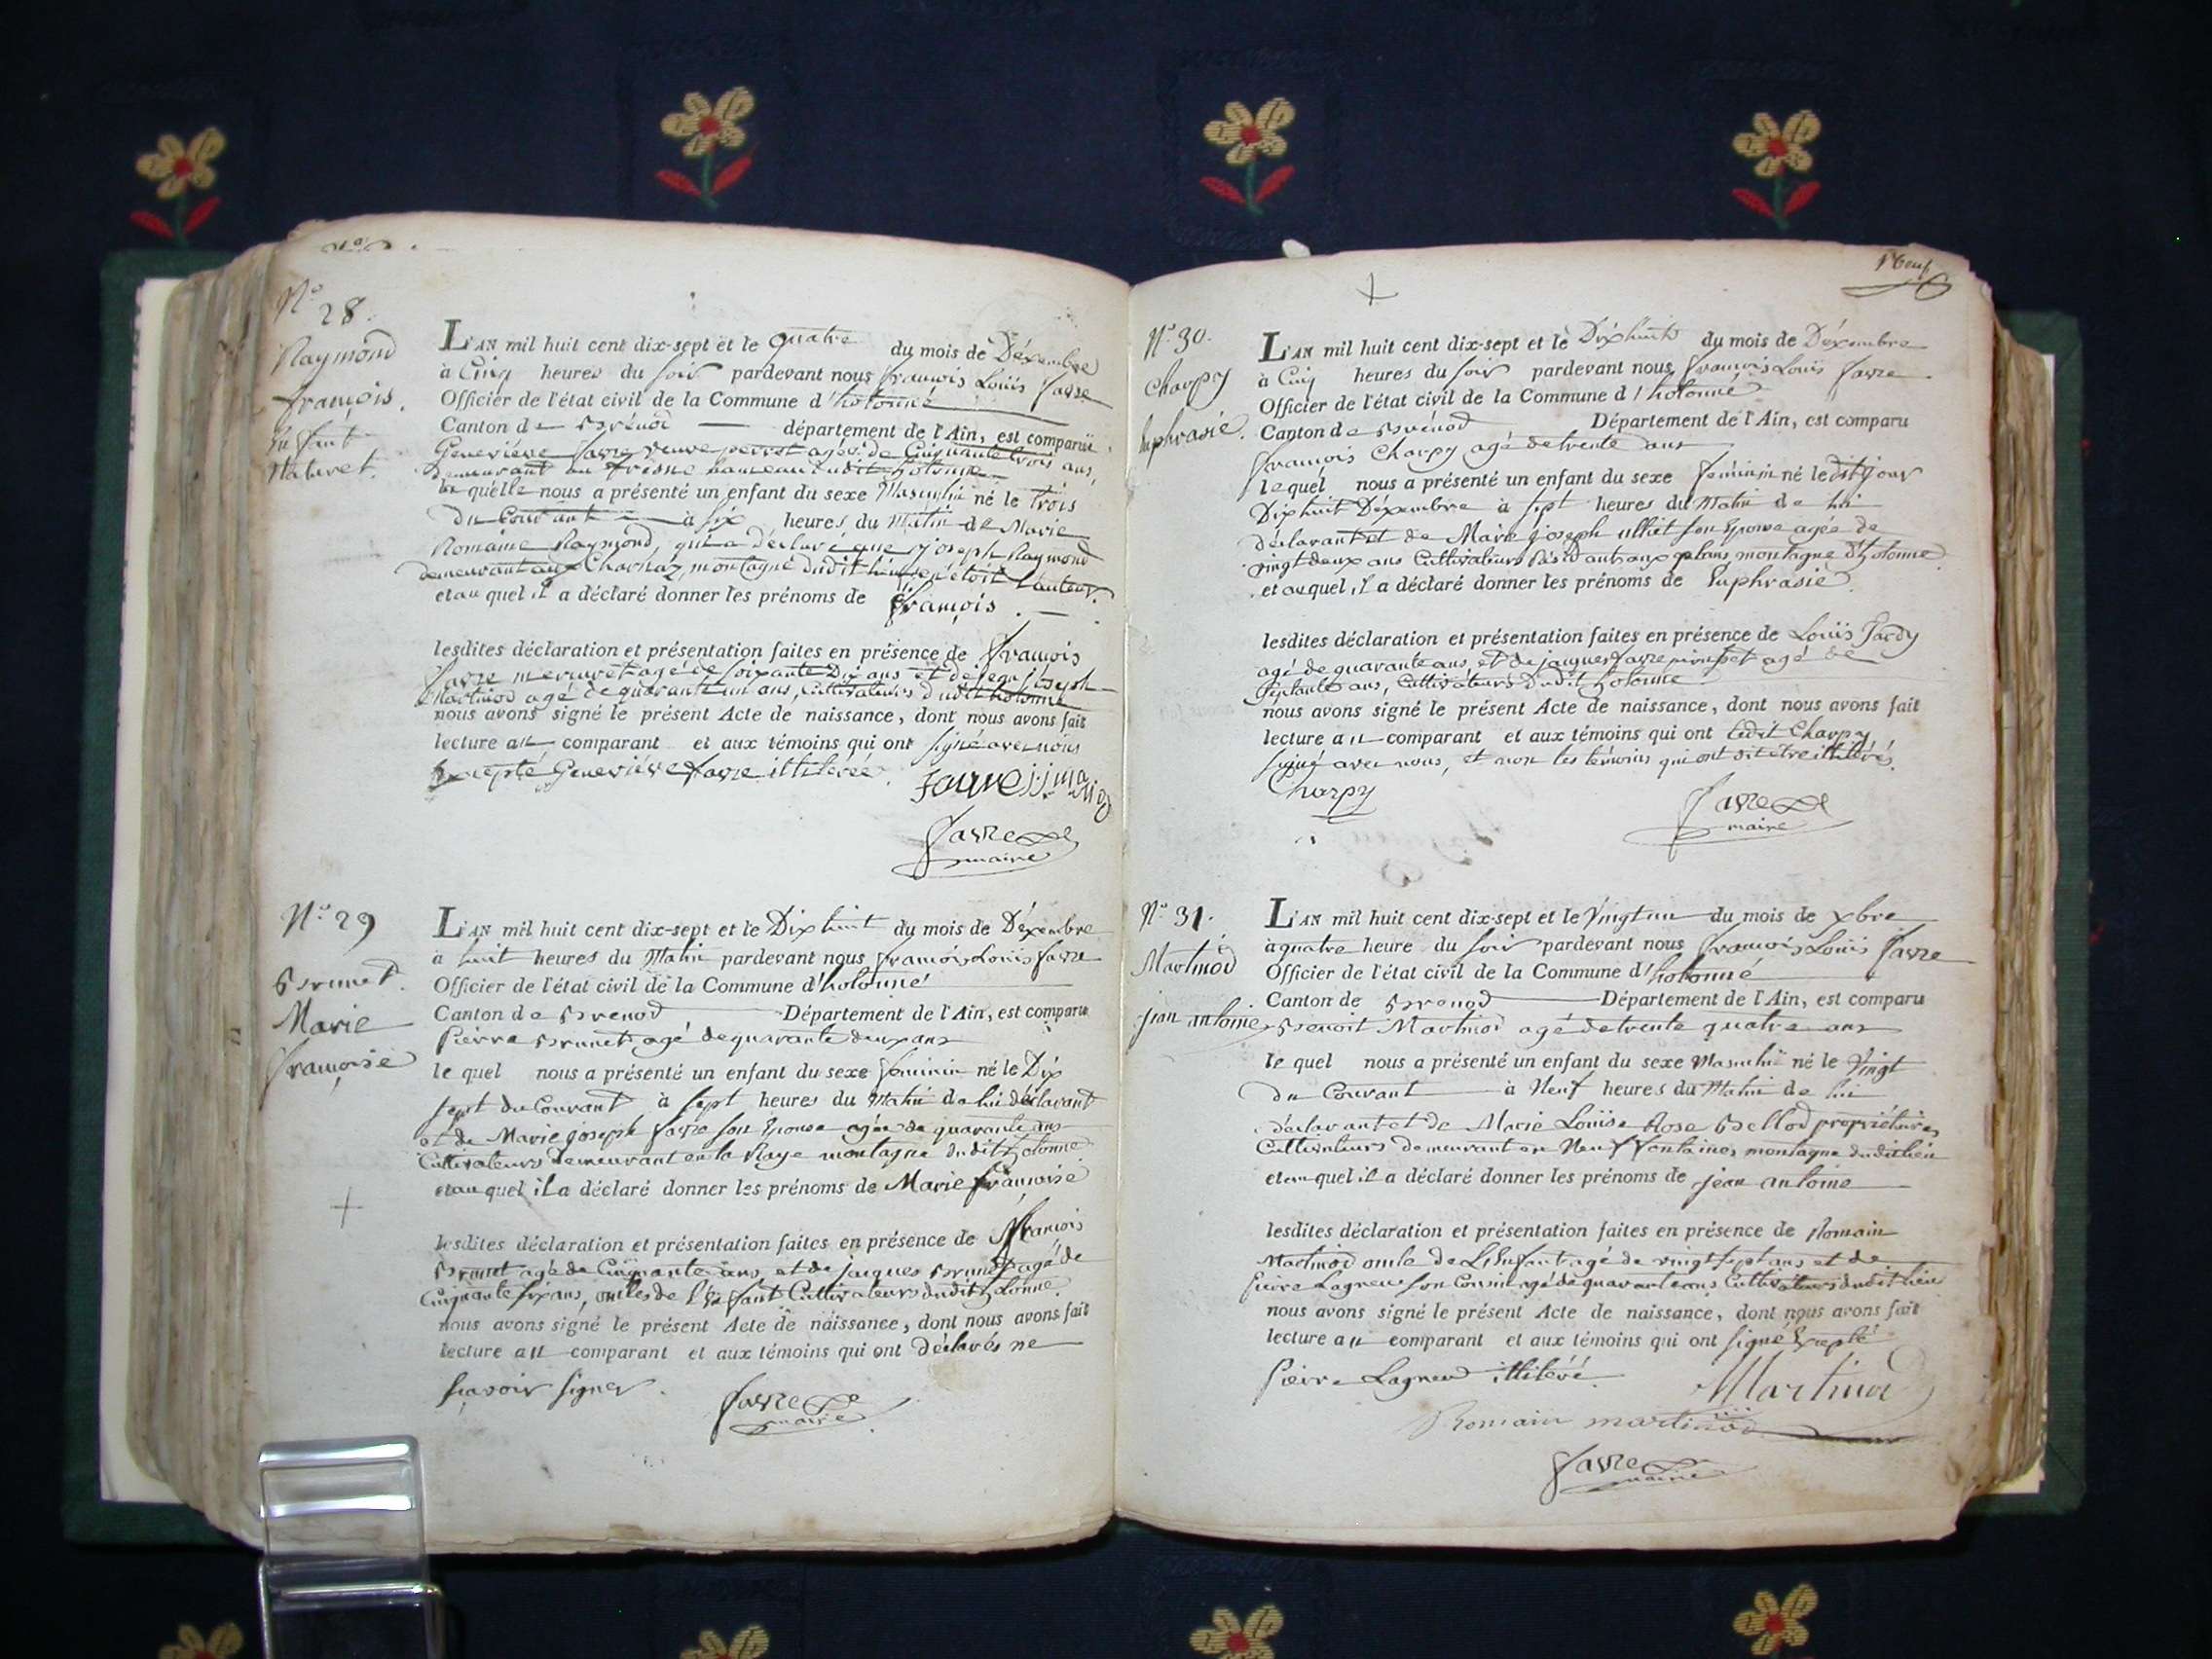 N.o
28.
Raymond
françois.
Enfant
Naturel.
L'AN mil huit cent dix-sept et le quatre du mois de Déxembre
à Cinq heures du soir pardevant nous françois Loüis favre
Officier de l'état civil de la Commune d'hotonne
Canton de Brénod département de l'Ain, est comparüe
Geneviéve favre veuve perret agée de Cinquante trois ans,
demeurant au fresne hameau dudit hotonne
la quelle nous a présenté un enfant du sexe Masculin né le trois
du Courant à six heures du Matin de Marie
Romaine Raymond, qui a déclaré que joseph Raymond
demeurant aux Charnaz, montagne dudit lieu, en étoit l'auteur.
et au quel il a déclaré donner les prénoms de françois.
lesdites déclaration et présentation faites en présence de françois
favre mermet agé de soixante Dix ans et de jean joseph
Martinod agé de quarant'un ans, Cultivateurs dudit hotonne
nous avons signé le présent Acte de naissance, dont nous avons fait
lecture au comparant et aux témoins qui ont signé avec nous
Excepté Geneviéve favre illiterée.
favre j.j. martinod
favre
maire
N.o 29
Brunet.
Marie
françoise
L'AN mil huit cent dix-sept et le Dix huit du mois de Déxembre
à huit heures du Matin pardevant nous françois Louis favre
Officier de l'état civil de la Commune d'hotonne
Canton de Brenod Département de l'Ain, est comparu
Pierre Brunet agé de quarante deux ans
le quel nous a présenté un enfant du sexe féminin né le Dix
sept du Courant à sept heures du Matin de lui déclarant
et de Marie joseph favre son Epouse agée de quarante ans
Cultivateurs demeurant en la Raye montagne dudit hotonne
et au quel il a déclaré donner les prénoms de Marie françoise
lesdites déclaration et présentation faites en présence de françois
Brunet agé de Cinquante ans et de jacques Brunet agé de
Cinquante six ans, oncles de l'Enfant Cultivateurs dudit hotonne.
nous avons signé le présent Acte de naissance, dont nous avons fait
lecture au comparant et aux témoins qui ont déclarés ne
sçavoir signer.
favre
maire
Neuf
N.o 30.
Charpy
Euphrasie.
L'AN mil huit cent dix-sept et le Dix huit du mois de Déxembre
à Cinq heures du soir pardevant nous françois Louis favre
Officier de l'état civil de la Commune d'hotonne
Canton de Brénod Département de l'Ain, est comparu
françois Charpy agé de trente ans
le quel nous a présenté un enfant du sexe féminin né le dit jour
Dix huit Déxembre à sept heures du Matin de lui
déclarant et de Marie joseph son Epouse agée de
vingt deux ans Cultivateurs Résidants aux plans, montagne d'hotonne.
et au quel il a déclaré donner les prénoms de Euphrasie.
lesdites déclaration et présentation faites en présence de Loüis
agé de quarante ans, et de jacques favre agé de
septante ans, Cultivateurs Dudit hotonne
nous avons signé le présent Acte de naissance, dont nous avons fait
lecture au comparant et aux témoins qui ont Ledit Charpy
signé avec nous, et non les témoins qui ont dit être illitérés.
Charpy
favre
maire
N.o 31.
Martinod
jean antoine
L'AN mil huit cent dix-sept et le Vingt un du mois de xbre
à quatre heure du soir pardevant nous françois Loüis favre
Officier de l'état civil de la Commune d'hotonne
Canton de Brenod Département de l'Ain, est comparu
Benoit Martinod agé de trente quatre ans
le quel nous a présenté un enfant du sexe Masculin né le Vingt
du Courant à Neuf heures du Matin de lui
déclarant et de Marie Loüise Rose Bellod propriétaires
Cultivateurs demeurant en Neuf fontaines, montagne dudit lieu
et au quel il a déclaré donner les prénoms de jean antoine
lesdites déclaration et présentation faites en présence de Romain
Martinod oncle de L'Enfant agé de vingt sept ans et de
Pierre Lagneu son Cousin agé de quarante ans Cultivateurs dudit lieu
nous avons signé le présent Acte de naissance, dont nous avons fait
lecture au comparant et aux témoins qui ont signé Excepté
Pierre Lagneu illitéré.
Martinod
Romain martinod
favre
maire